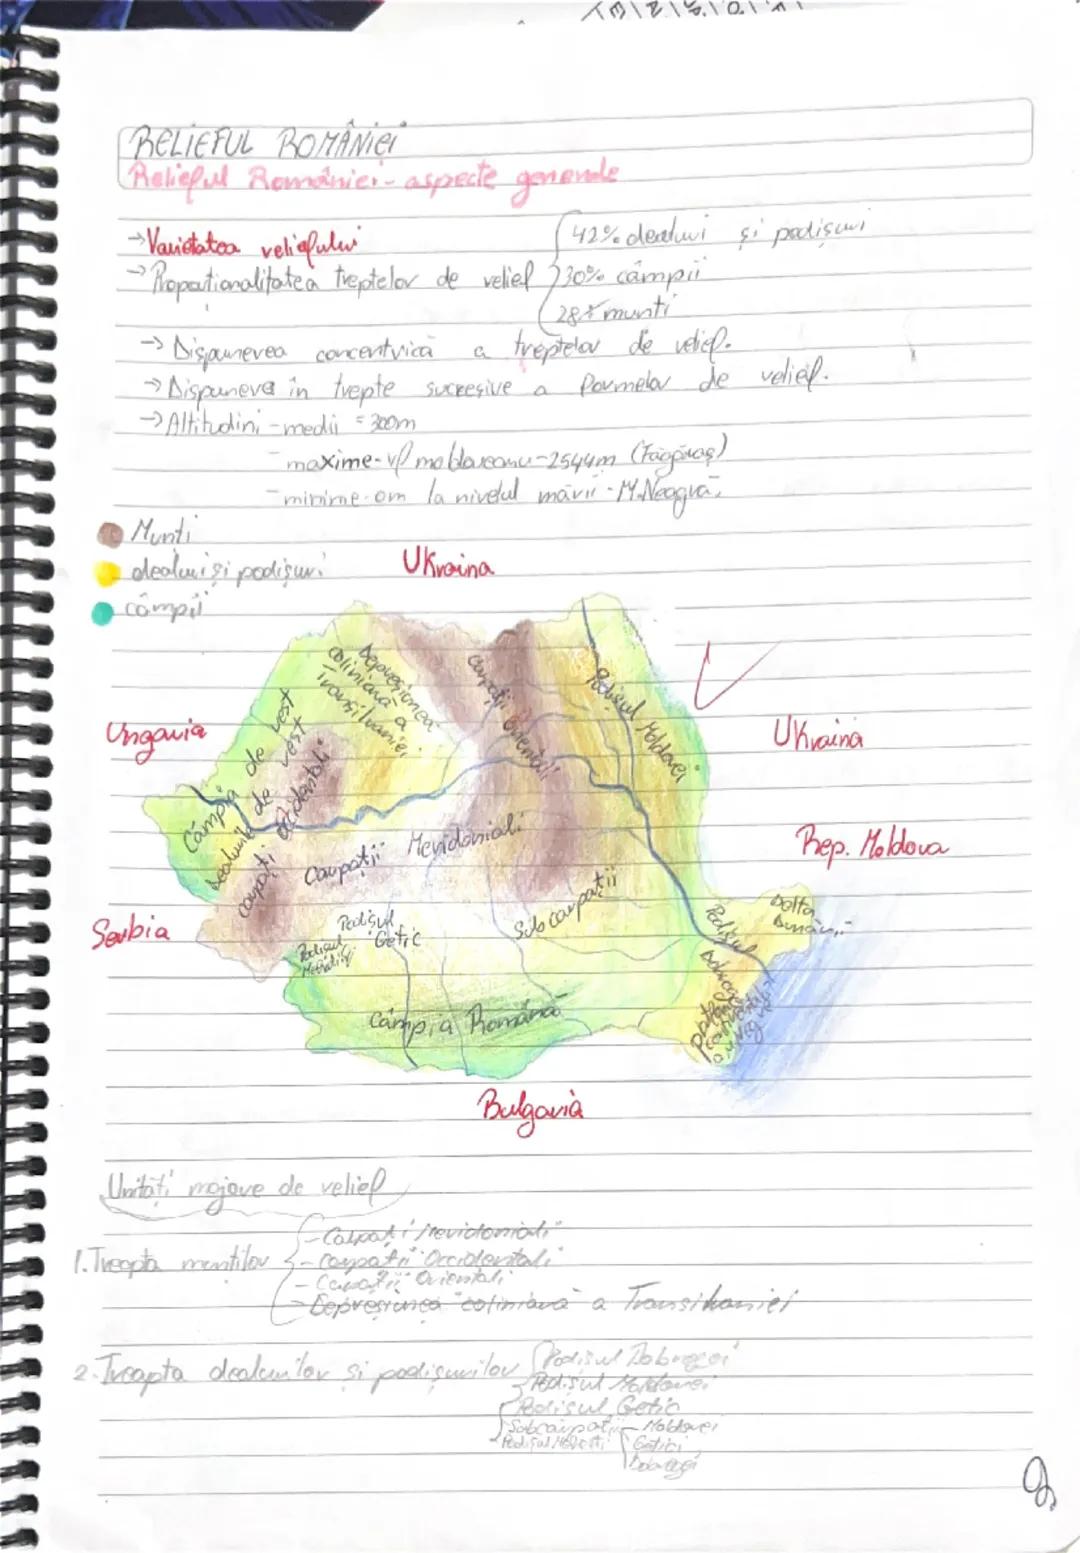 RELIEFUL ROMÂNIEI
Relieful României - aspecte generale
→ Varietatea reliefului
→ Proportionalitatea treptelor de relief
42% dealuri și podișuri
30% câmpii
28% munti
→ Dispunerea concentrică a treptelor de relief.
→ Dispunere în trepte succesive a formelor de relief.
→ Altitudini - medii = 300m
- maxime - vf moldoveanu - 2544m (Făgăraș)
- minime - om la nivelul mării - M. Neagră.
Munti
dealuri și podișuri
câmpii
Ukraina
Ungaria
Ukraina
Rep. Moldova
Serbia
Bulgaria
Depresiunea
coliniara a
Transilvaniei
Carpații Orientali
Podișul Moldovei
Câmpia de vest
Dealurile de vest
Carpații Occidentali
Carpații Meridionali
Subcarpații
Podișul
Getic
Podișul
Câmpia Română
Podișul
Delta
Dunării
Unităti majore de relief
1. Treapta muntilor
- Carpații Meridionali
- Carpații Occidentali
- Carpații Orientali
- Depresiunea coliniară a Transilvaniei
2. Treapta dealurilor și podișurilor
Podișul Dobrogei
Podișul Moldovei
Podișul Getic
Subcarpații - Moldovei
Getici